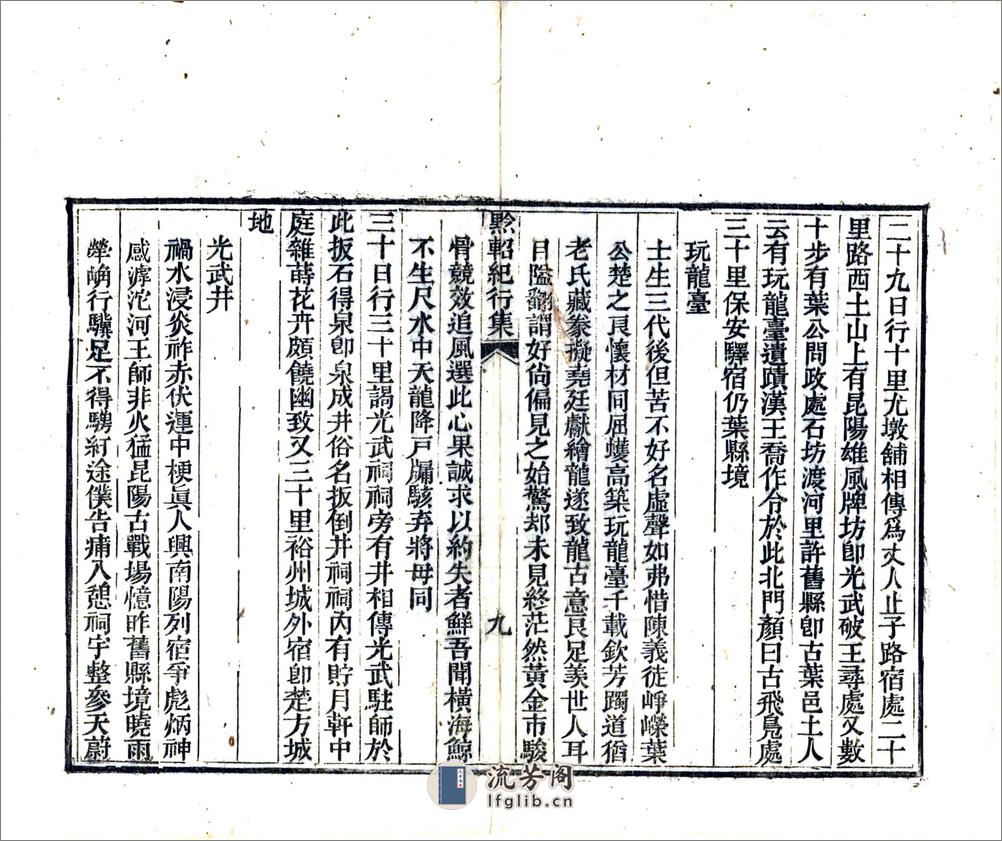 二十九日行十里尤墩舖相傳爲丈人止子路宿處二十
里路西土山上有昆陽雄風牌坊卽光武破王尋處又數
十步有葉公問政處石坊渡河里許舊縣卽古葉邑土人
云有玩龍臺遺蹟漢王喬作令於此北門顏曰古飛鳧處
三十里保安驛宿仍葉縣境
玩龍臺
士生三代後但苦不好名虛聲如弗惜陳義徒崢嶸葉
公楚之良懷材同屈蠖高築玩龍臺千載欽芳躅道猶
老氏藏豢擬堯廷獻繪龍遂致龍古意良足羨世人耳
目隘翻謂好尙偏見之始驚却未見終茫然黃金市駿
黔軺紀行集
九
骨競效追風選此心果誠求以約失者鮮吾聞橫海鯨
不生尺水中天龍降戸牖駭弃將毋同
三十日行三十里謁光武祠祠旁有井相傳光武駐師於
此扳石得泉卽泉成井俗名扳倒井祠內有貯月軒中
庭雜蒔花卉頗饒幽致又三十里裕州城外宿卽楚方城
地
光武井
禍水浸炎祚赤伏運中梗眞人興南陽列宿爭彪炳神
感滹沱河王師非火猛昆陽古戰場憶昨舊縣境曉雨
犖确行驥足不得騁紆途僕告痡入憩祠宇整參天蔚
流芳阁
lfglib.cn